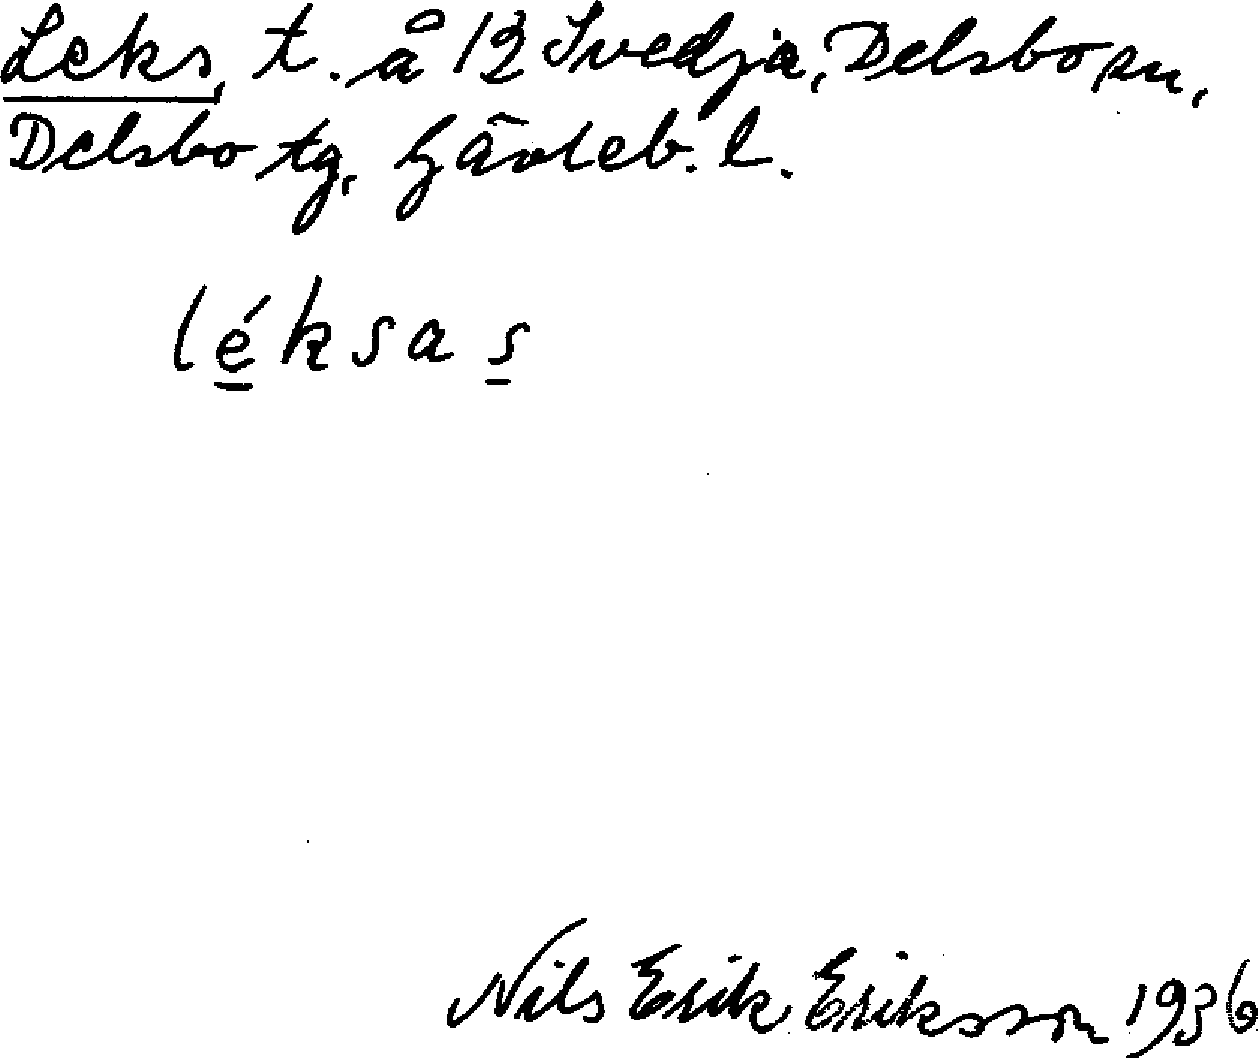 Leks, t. å 12 Svedja, Delsbo sn,
Delsbo tg, Gävleb. l.
léksas
Nils Erik Eriksson 1936